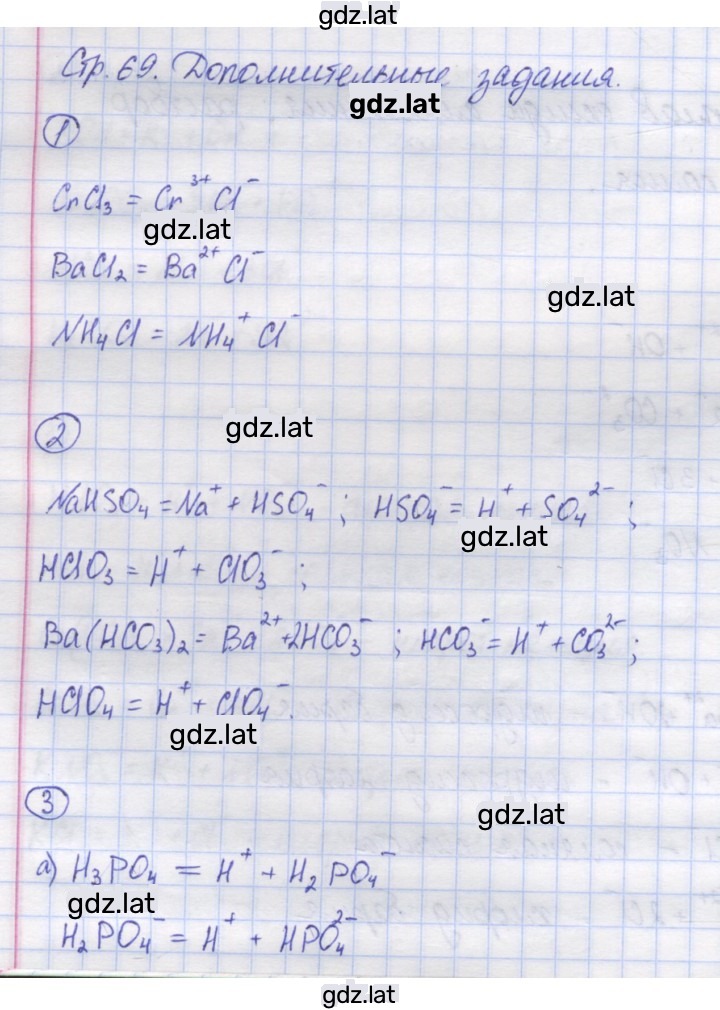 gdz.lat
Стр. 69. Дополнительные задания.
gdz.lat
1
CrCl₃ = Cr³⁺Cl⁻
gdz.lat
BaCl₂ = Ba²⁺Cl⁻
gdz.lat
NH₄Cl = NH₄⁺Cl⁻
2
gdz.lat
NaHSO₄ = Na⁺ + HSO₄⁻ ; HSO₄⁻ = H⁺ + SO₄²⁻ ;
gdz.lat
HClO₃ = H⁺ + ClO₃⁻ ;
Ba(HCO₃)₂ = Ba²⁺ + 2HCO₃⁻ ; HCO₃⁻ = H⁺ + CO₃²⁻ ;
HClO₄ = H⁺ + ClO₄⁻.
gdz.lat
3
gdz.lat
а) H₃PO₄ = H⁺ + H₂PO₄⁻
gdz.lat
H₂PO₄⁻ = H⁺ + HPO₄²⁻
gdz.lat